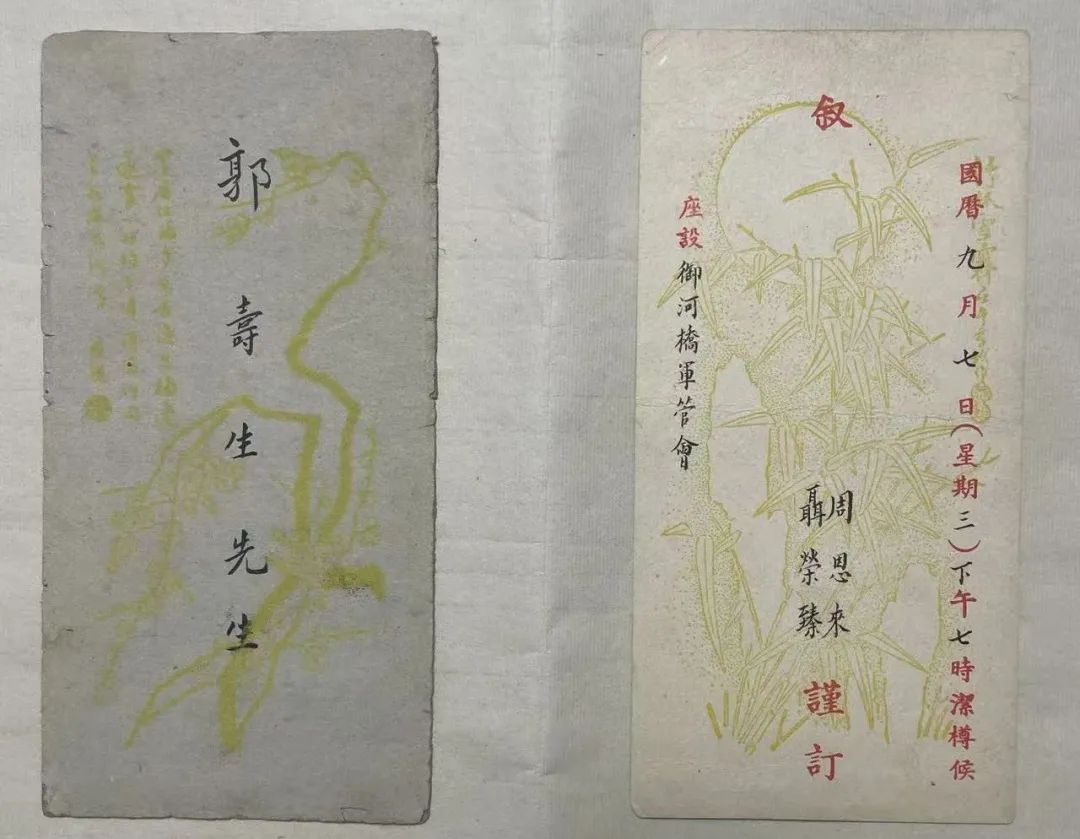 郭壽生先生
國曆九月七日(星期三)下午七時潔樽候
叙
周恩來
聶榮臻
謹訂
座設御河橋軍管會